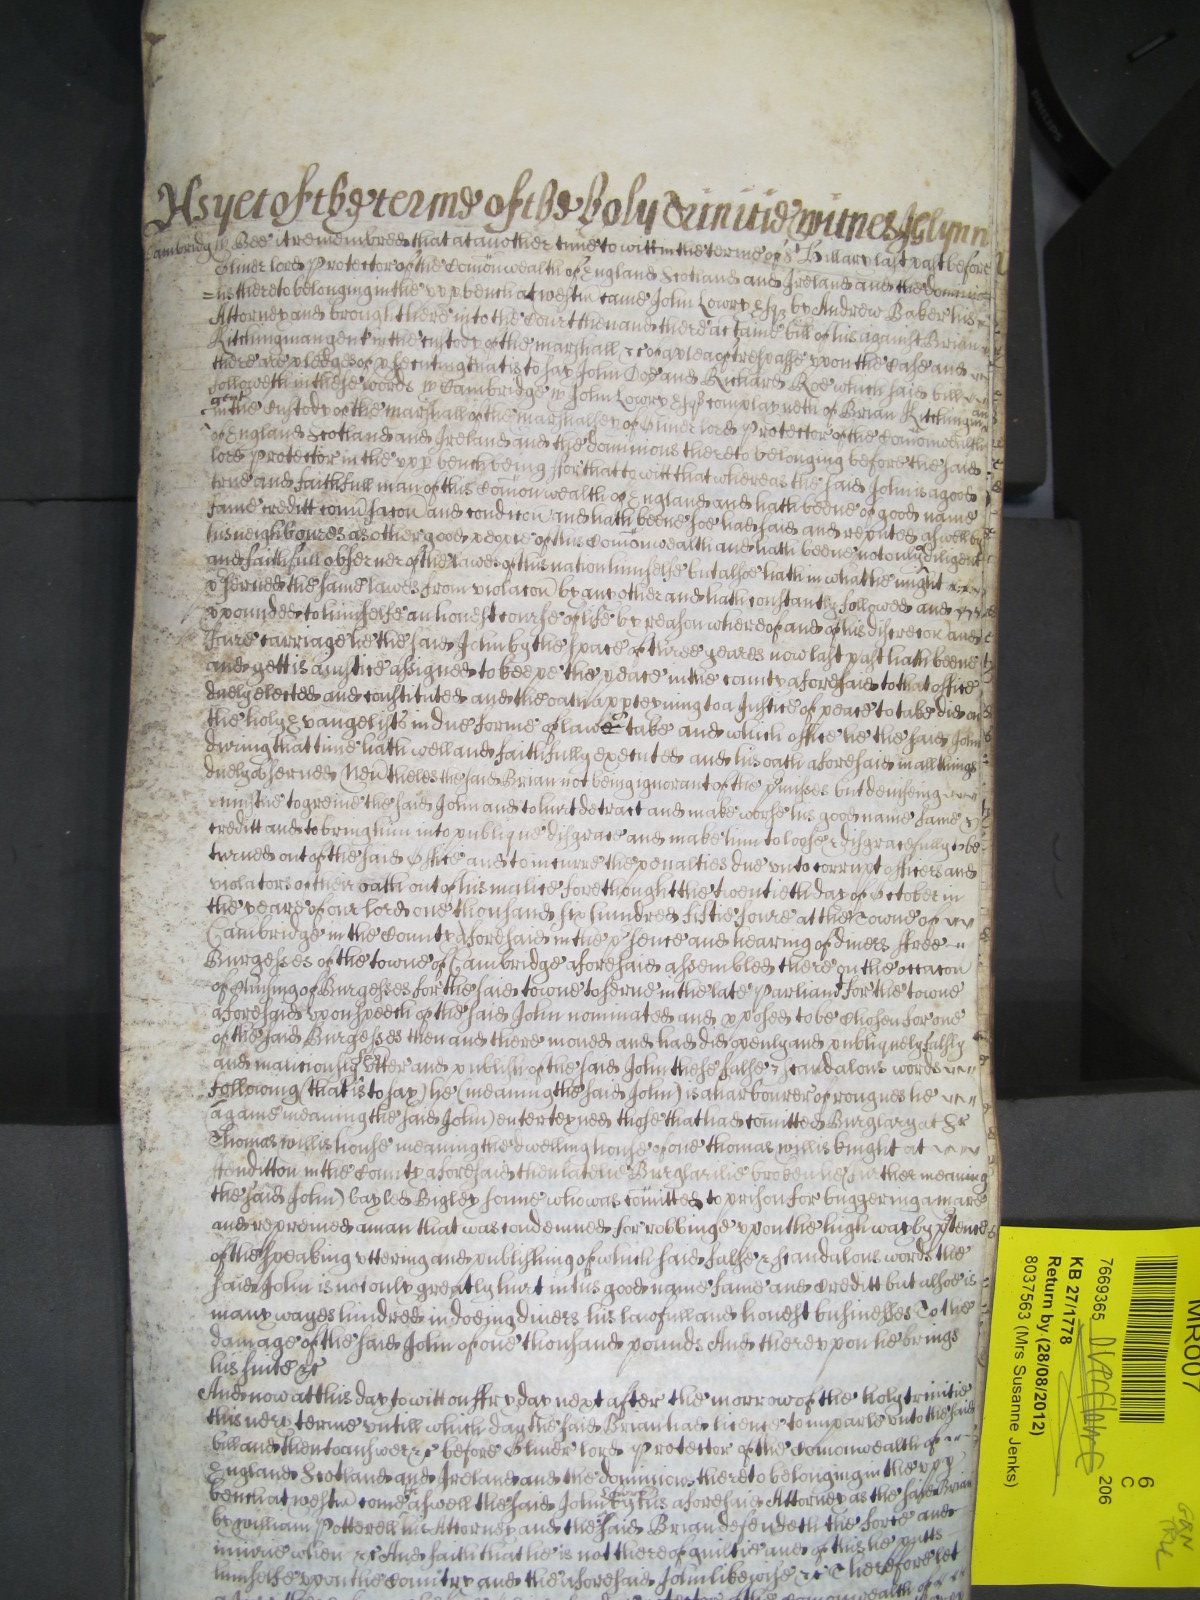 As yet of the terme of the holy Trinitie witnes J Glynn
Cambridg ss Bee it remembred that at another time to witt in the terme of St Hillary last past before
Oliver lord Protector of the Comonwealth of England Scotland and Ireland and the dominio
=ns thereto belonging in the upp bench at westm came John Lowry Esq by Andrew Baker his
Attorney and brought here into the Court then and there a certaine bill of his against Brian
Kitchingman gent in the custody of the marshall &c of a plea of trespasse upon the Case and
there are pledges of psecuting that is to say John Doe and Richard Roe which said bill
followeth in these words ss Cambridge ss John Lowry Esq complayneth of Brian Kitchingman
gent
in the Custody of the marshall of the marshalsey of Oliver lord Protector of the Comonwealth
of England Scotland and Ireland and the dominions thereto belonging before the said
lord Protector in the upp bench being for that to witt that whereas the said John is a good
true and faithfull man of this Comonwealth of England and hath beene of good name
fame creditt convsacon and condicon and hath beene soe had said and reputed aswell by
his neighboures as other good people of this Comonwealth and hath beene not only diligent
and faithfull observer of the lawes of this nation himselfe but alsoe hath in what he might
pserved the same lawes from violacon by any other and hath constantly followed and
ppounded to himselfe an honest course of life by reason whereof and of his discrecon and
faire carriage he the said John by the space of three yeares now last past hath beene
and yett is a justice assigned to keepe the peace in the county aforesaid to that office
duely elected and constituted and the oath apperteyning to a Justice of peace to take did on
the holy Evangelists in due forme of lawe take and which office he the said John
during that time hath well and faithfully executed and his oath aforesaid in all things
duely observed Nevtheles the said Brian not being ignorant of the pmisses but deviseing
unjustlie to greive the said John and to hurt detract and make worse his good name fame &
creditt and to bring him into publique disgrace and make him to loose & disgracefully to be
turned out of the said Office and to incurre the penalties due unto corrupt officers and
violators of their oath out of his malice forethought the twentieth day of October in
the yeare of our lord one thousand six hundred fiftie foure at the Towne of
Cambridge in the County aforesaid in the psence and hearing of divers ffree
Burgesses of the towne of Cambridge aforesaid assembled there on the occacon
of Chusing of Burgesses for the said towne to serve in the late Parliamt for the towne
aforesaid upon speech of the said John nominated and pposed to be Chosen for one
of the said Burgesses then and there moved and had did openly and publiquely falsly
and maliciously say utter and publish of the said John these false & scandalous words
following (that is to say) he (meaning the said John) is a harbourer of rougues he
(againe meaning the said John) enterteyned those that had comitted Burglary at Sr
Thomas Willis house meaning the dwelling house of one Thomas Willis knight at
ffenditton in the County aforesaid then late Burglarilie broken he further meaning
the said John) bayled Bigley sonne who was comitted to prison for buggering a mare
and reprived a man that was condemned for robbinge upon the high way by ptence
of the speaking uttering and publishing of which said false & scandalous words the
said John is not only greatly hurt in his good name fame and Creditt but alsoe is
many wayes hindred in doeing divers his lawfull and honest businesses To the
damage of the said John of one thousand pounds And thereupon he brings
his suite &c
And now at this day to witt on ffryday next after the morrow of the holy trinitie
this very terme untill which day the said Brian had licence to imparle unto the said
bill and then to answer &c before Oliver lord Protector of the Comonwealth of
England Scotland and Ireland and the dominions thereto belonging in the upp
bench at westm come aswell the said John Lowry by his aforesaid Attorney as the said Brian
by William Potterell his Attorney and the said Brian defendeth the force and
iniurie when &c And saith that he is not thereof guiltie and of this he putts
himselfe upon the Country and the aforesaid John likewise &c Therefore let
Comonwealth of
PHILIPS
MR007
7669365
KB 27/1778
Return by (28/08/2012)
8037563 (Mrs Susanne Jenks)
6
C
206